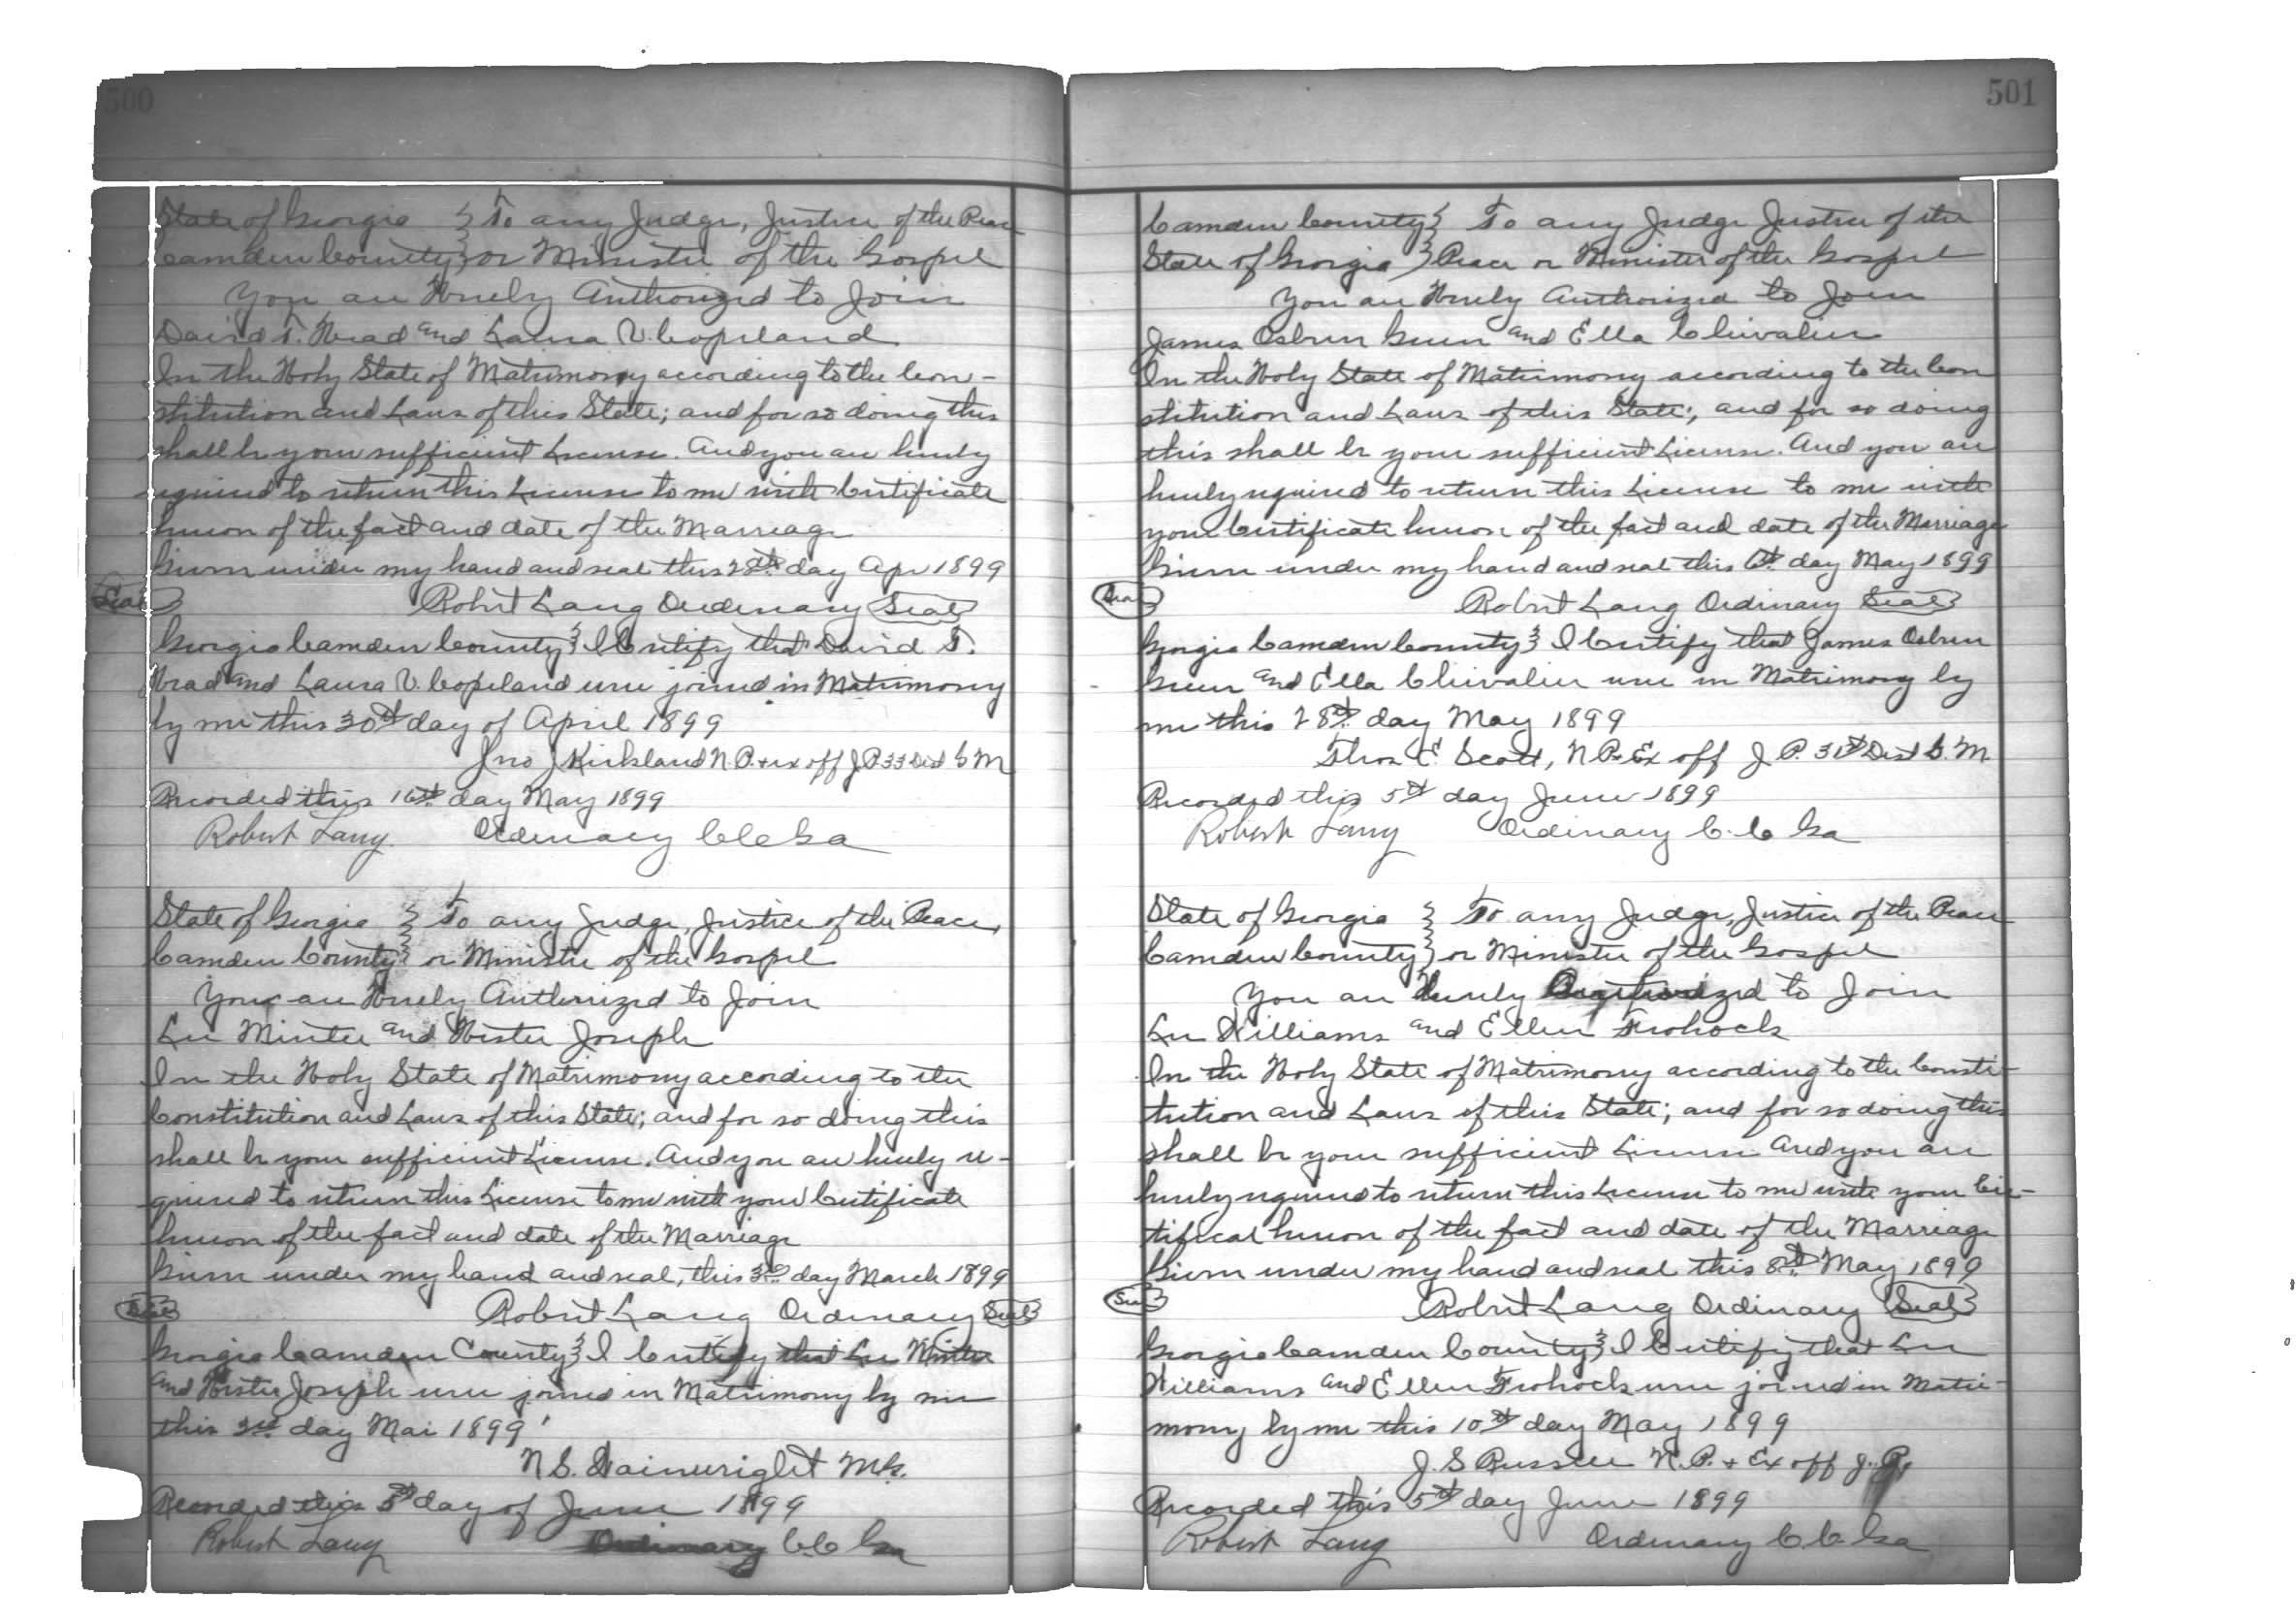 500
State of Georgia } To any Judge, Justice of the Peace
Camden County } or Minister of the Gospel
You are Hereby Authorized to Join
David T. Head and Laura V. Copeland
In the Holy State of Matrimony according to the Con-
stitution and Laws of this State; and for so doing this
shall be your sufficient License. And you are hereby
required to return this License to me with Certificate
hereon of the fact and date of the Marriage
Given under my hand and seal this 28th day Apr 1899
Seal Robert Lang Ordinary Seal
Georgia Camden County } I Certify that David T.
Head and Laura V. Copeland were joined in Matrimony
by me this 30th day of April 1899
Jno J Kirkland N.P. & ex off J.P. 33 Dist G M
Recorded this 16th day May 1899
Robert Lang Ordinary C C Ga
State of Georgia } To any Judge, Justice of the Peace,
Camden County } or Minister of the Gospel
You are Hereby Authorized to Join
Lee Minter and Hester Joseph
In the Holy State of Matrimony according to the
Constitution and Laws of this State; and for so doing this
shall be your sufficient License. And you are hereby re-
quired to return this License to me with your Certificate
hereon of the fact and date of the Marriage
Given under my hand and seal, this 3rd day March 1899
Seal Robert Lang Ordinary Seal
Georgia Camden County } I Certify that Lee Minter
and Hester Joseph were joined in Matrimony by me
this day Mai 1899
N S. Wainwright M.G.
Recorded this 5th day of June 1899
Robert Lang Ordinary C.C Ga
501
Camden County } To any Judge Justice of the
State of Georgia } Peace or Minister of the Gospel
You are Hereby Authorized to Join
James Osbrn Green and Ella Chivalier
In the Holy State of Matrimony according to the Con
stitution and Laws of this State; and for so doing
this shall be your sufficient License. And you are
hereby required to return this License to me with
your Certificate hereon of the fact and date of the Marriage
Given under my hand and seal this 6th day May 1899
Seal Robert Lang Ordinary Seal
Georgia Camden County } I Certify that James Osbrn
Green and Ella Chivalier were in Matrimony by
me this 28th day May 1899
Thos E Scott, N P & Ex off J P. 31st Dist G. M.
Recorded this 5th day June 1899
Robert Lang Ordinary C. C Ga
State of Georgia } To any Judge, Justice of the Peace
Camden County } or Minister of the Gospel
You are Hereby Authorized to Join
Lee Williams and Ellen Frohock
In the Holy State of Matrimony according to the Consti-
tution and Laws of this State; and for so doing this
shall be your sufficient License And you are
hereby required to return this License to me with your Cer-
tificat hereon of the fact and date of the Marriage
Given under my hand and seal this 8th May 1899
Seal Robert Lang Ordinary Seal
Georgia Camden County } I Certify that Lee
Williams and Ellen Frohock were joined in Matri-
mony by me this 10th day May 1899
J. S Russell N.P. & Ex off J.P.
Recorded this 5th day June 1899
Robert Lang Ordinary C.C. Ga